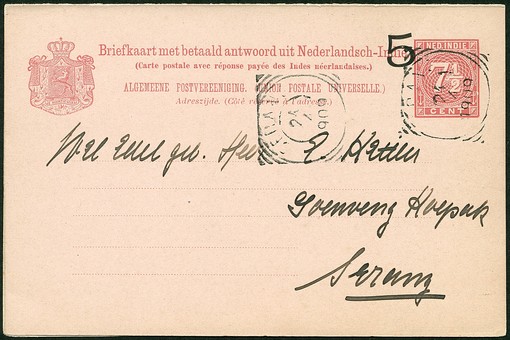 Briefkaart met betaald antwoord uit Nederlandsch-Indië
(Carte postale avec réponse payée des Indes néerlandaises.)
ALGEMEENE POSTVEREENIGING. (UNION POSTALE UNIVERSELLE.)
Adreszijde. (Côté réservé à l'adresse.)
5
NED-INDIE
7½
CENT
24
1909
24
1909
Wel Edel geb. Heer
Goenoeng Koepak
Serang